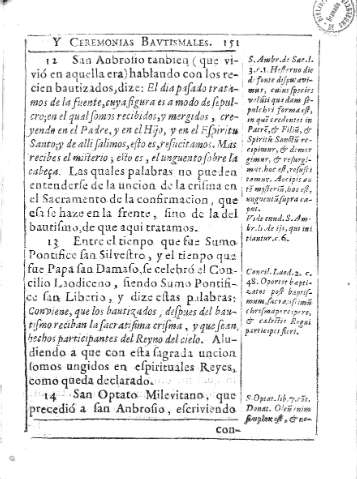 Y CEREMONIAS BAVTISMALES. 151
12 San Ambrosio tanbien (que vi-
vió en aquella era) hablando con los re-
cien bautizados, dize: El dia pasado trata-
mos de la fuente, cuya figura es a modo de sepul-
cro; en el qual somos recibidos, y mergidos, cre-
yendo en el Padre, y en el Hijo, y en el Espiritu
Santo; y de alli salimos, esto es, resucitamos. Mas
recibes el misterio, esto es, el unguento sobre la
cabeça. Las quales palabras no pueden
entenderse de la uncion de la crisma en
el Sacramento de la confirmacion, que
esa se haze en la frente, sino de la del
bautismo, de que aqui tratamos.
13 Entre el tienpo que fue Sumo
Pontifice san Silvestro, y el tienpo que
fue Papa san Damaso, se celebró el Con-
cilio Laodiceno, siendo Sumo Pontifi-
ce san Liberio, y dize estas palabras:
Conviene, que los bautizados, despues del bau-
tismo reciban la sacratisima crisma, y que sean,
hechos participantes del Reyno del cielo. Alu-
diendo a que con esta sagrada uncion
somos ungidos en espirituales Reyes,
como queda declarado.
14 San Optato Milevitano, que
precedió a san Anbrosio, escriviendo
con-
S. Ambr. de Sacr. l.
3. c. 1. Hesterno die
d' fonte disputavi-
mur, cuius species
veluti quaedam se-
pulchri forma est,
in quē credentes in
Patrē, & Filiū, &
Spiritū Sanctū re-
cipimur, & demer-
gimur, & resurgi-
mur, hoc est, resusci-
tamur. Accipis au-
tē mysteriū, hoc est,
unguentū supra ca-
put.
Concil. Laod. 2. c.
48. Oportet bapti-
zatos post baptis-
mum, sacratissimū
chrisma percipere,
& coelestis Regni
participes fieri.
S. Optat. lib. 7. cōt.
Donat. Oleū enim
simplex est, & no-